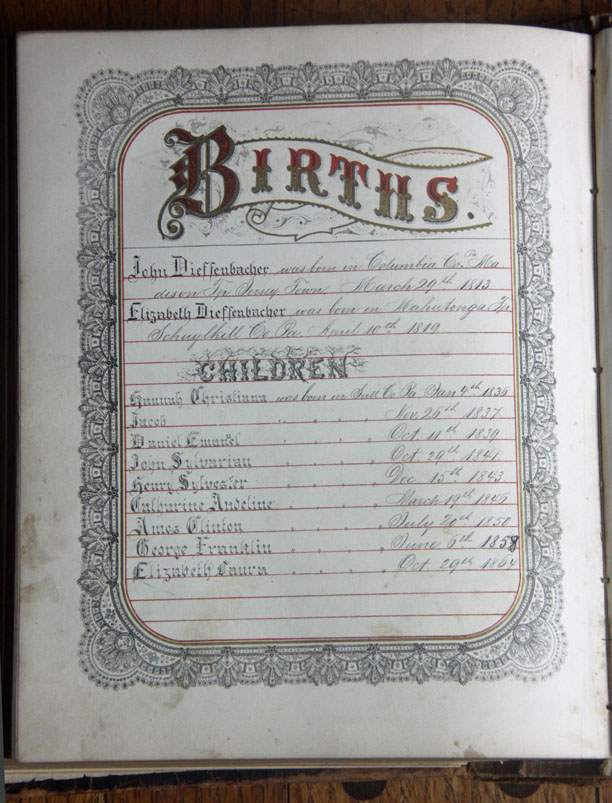 BIRTHS.
John Dieffenbacher was born in Columbia Co. Pa Ma
dison Tp Jersey Town, March 29th 1813
Elizabeth Dieffenbacher was born in Mahutonga Tp
Schuylkill Co Pa. April 10th 1819
CHILDREN
Hannah Christiana was born in Co Pa Jan 4th 1836
Jacob " " " Nov. 26th 1837
Daniel " " " Oct 11th 1839
John Sylvarian " " " Oct 29th 1841
Henry Sylvester " " " Dec 15th 1843
Catharine Andeline " " " March 19th
Amos Clinton " " " July 20th 1850
George Franklin " " " June 6th 1858
Elizabeth Laura " " " Oct 29th 1864